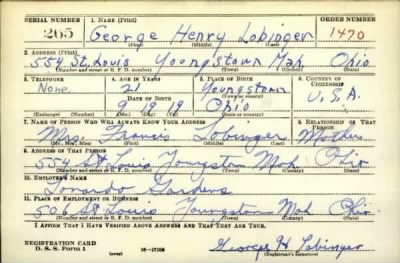 SERIAL NUMBER 1. NAME (Print) ORDER NUMBER
265 George Henry Lobinger 1470
(First) (Middle) (Last)
2. ADDRESS (Print)
554 St. Louis Youngstown Mah. Ohio
(Number and street or R. F. D. number) (Town) (County) (State)
3. TELEPHONE 4. AGE IN YEARS 5. PLACE OF BIRTH 6. COUNTRY OF CITIZENSHIP
None 21 Youngstown
DATE OF BIRTH (Town or county)
9 19 19 Ohio U.S.A.
(Exchange) (Number) (Mo.) (Day) (Yr.) (State or country)
7. NAME OF PERSON WHO WILL ALWAYS KNOW YOUR ADDRESS 8. RELATIONSHIP OF THAT PERSON
Mrs. Francis Lobinger Mother
(Mr., Mrs., Miss) (First) (Middle) (Last)
9. ADDRESS OF THAT PERSON
554 St Louis Youngstown Mah Ohio
(Number and street or R. F. D. number) (Town) (County) (State)
10. EMPLOYER'S NAME
Gardens
11. PLACE OF EMPLOYMENT OR BUSINESS
506 St Louis Youngstown Mah Ohio
(Number and street or R. F. D. number) (Town) (County) (State)
I AFFIRM THAT I HAVE VERIFIED ABOVE ANSWERS AND THAT THEY ARE TRUE.
REGISTRATION CARD
D. S. S. Form 1 George H Lobinger
(over) (Registrant's signature)